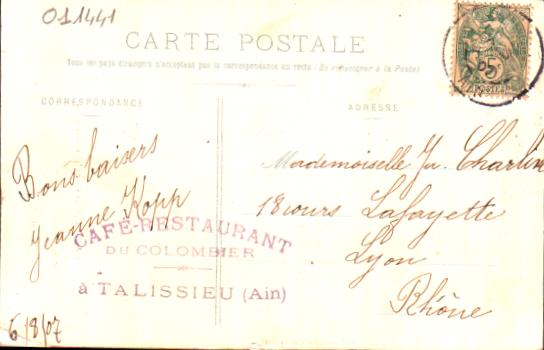 011441
CARTE POSTALE
Tous les pays étrangers n'acceptent pas la correspondance au recto (Se renseigner à la Poste)
CORRESPONDANCE
ADRESSE
Bons baisers
Jeanne Kopp
CAFÉ-RESTAURANT
DU COLOMBIER
à TALISSIEU (Ain)
6/8/07
Mademoiselle Charlin
18 cours Lafayette
Lyon
Rhône
5
POSTES